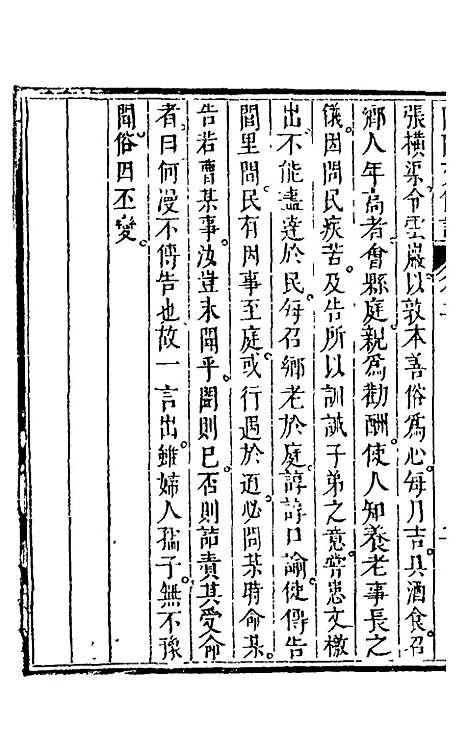 張橫渠令雲巖以敦本善俗為心每月吉具酒食召
鄉人年高者會縣庭親爲勸酬使人知養老事長之
儀因問民疾苦及告所以訓誡子弟之意嘗患文檄
出不能盡達於民每召鄉老於庭諄諄口諭使傳告
閭里間民有因事至庭或行遇於道必問某時命某
告若曹某事汝豈未聞乎聞則已否則詰責其受命
者曰何漫不傳告也故一言出雖婦人孺子無不豫
聞俗因丕變